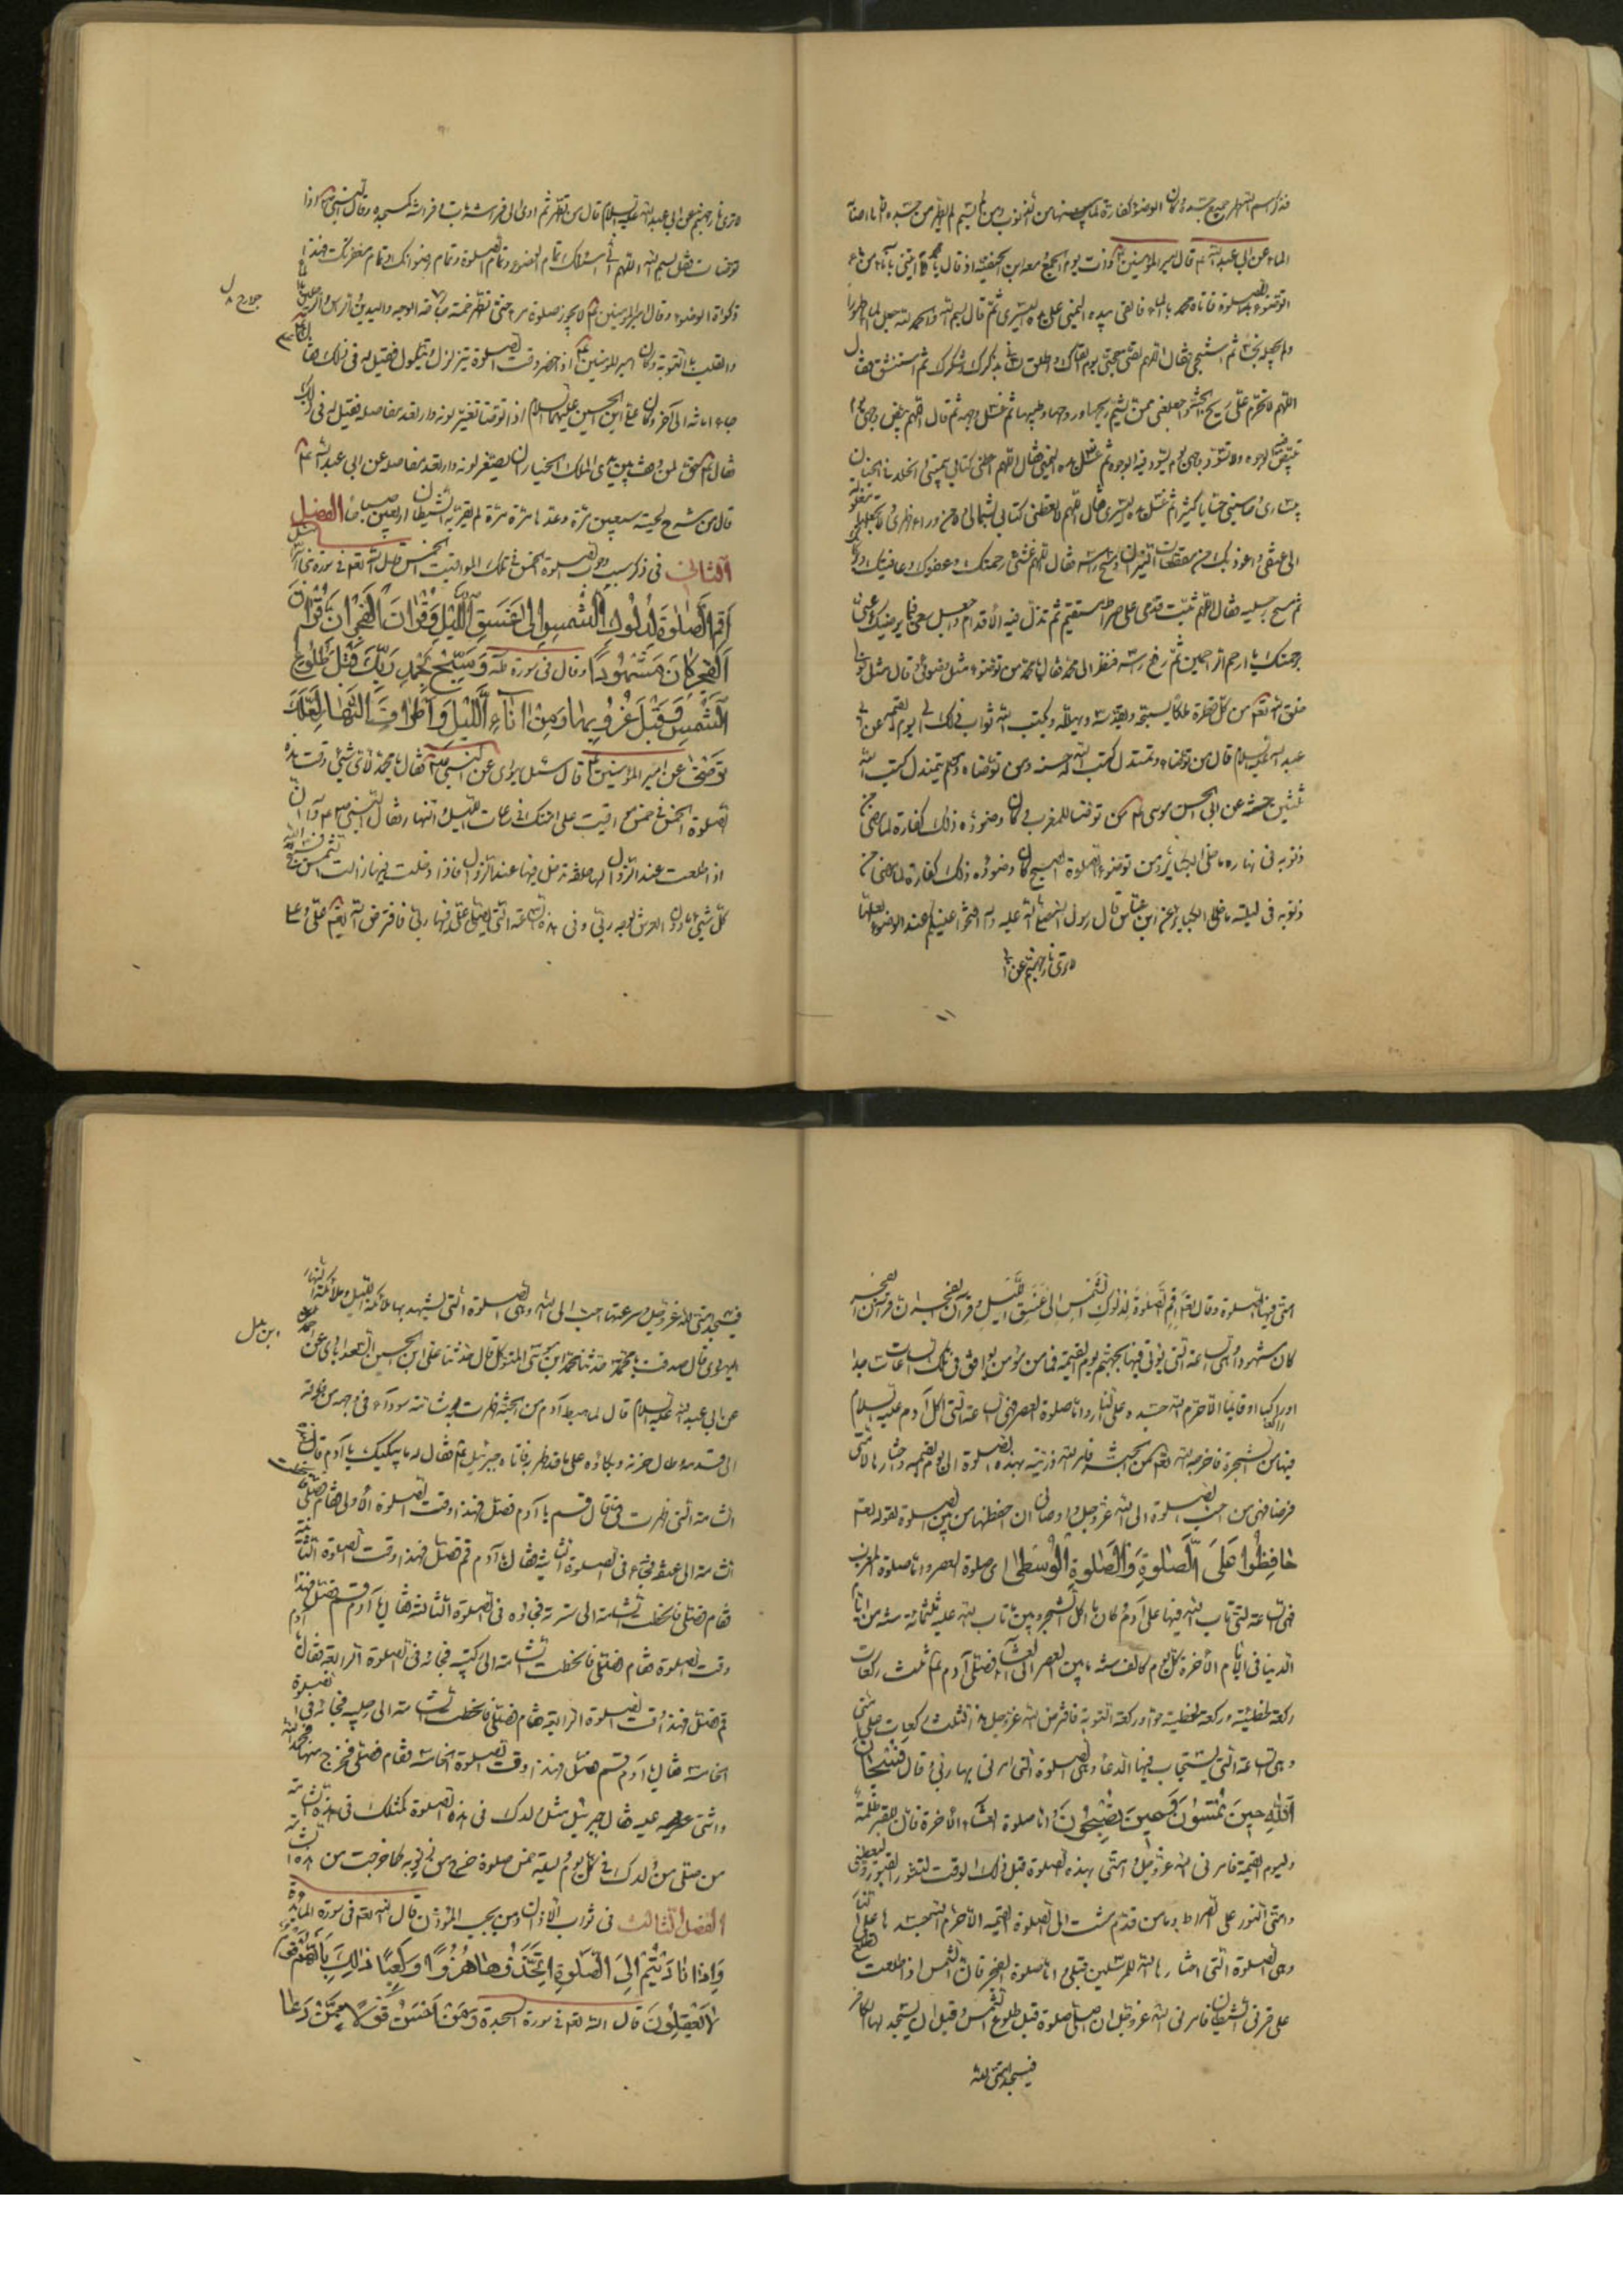 فذكر اسم الله طهر جميع جسده وكان الوضوء كفارة لما بينهما من الذنوب ومن لم يسم لم يطهر من جسده الا ما اصابه
الماء عن ابي عبد الله ع قال امير المؤمنين ع ذات يوم مع ابن الحنفية اذ قال يا محمد ايتني باناء من ماء
اتوضوء للصلوة فاتاه محمد بالماء فالقى بيده اليمنى على يده اليسرى ثم قال بسم الله والحمد لله الذي جعل الماء طهورا
ولم يجعله نجسا ثم استنجى فقال اللهم لقني حجتي يوم القاك واطلق لساني بذكرك وشكرك ثم استنشق فقال
اللهم لا تحرم علي ريح الجنة واجعلني ممن يشم ريحها وروحها وطيبها ثم غسل وجهه ثم قال اللهم بيض وجهي يوم
تبيض فيه الوجوه ولا تسود وجهي يوم تسود فيه الوجوه ثم غسل يده اليمنى فقال اللهم اعطني كتابي بيميني والخلد في الجنان
بيساري وحاسبني حسابا يسيرا ثم غسل يده اليسرى فقال اللهم لا تعطني كتابي بشمالي ولا من وراء ظهري ولا تجعلها مغلولة
الى عنقي واعوذ بك من مقطعات النيران ثم مسح راسه فقال اللهم غشني رحمتك وعفوك وعافيتك
ثم مسح رجليه فقال اللهم ثبت قدمي على صراط مستقيم يوم تزل فيه الاقدام واجعل سعيي فيما يرضيك عني
برحمتك يا ارحم الراحمين ثم رفع راسه فنظر الى محمد فقال يا محمد من توضوء مثل وضوئي وقال مثل قولي
خلق الله تعم من كل قطرة ملكا يسبحه ويقدسه ويهلله ويكتب الله ثواب ذلك الى يوم القيمة عن ابي
عبد الله عليه السلام قال من توضاء وتمندل كتب الله له حسنة ومن توضاء ولم يتمندل كتب الله
ثلثين حسنة عن ابي الحسن موسى ع من توضا للمغرب كان وضوئه ذلك كفارة لما مضى من
ذنوبه في نهاره ما خلا الكبائر ومن توضوء لصلوة الصبح كان وضوئه ذلك كفارة لما مضى من
ذنوبه في ليلته ما خلا الكبائر عن ابن عباس قال رسول الله صلى الله عليه واله افتحوا عينيكم عند الوضوء لعلها
لا ترى نار جهنم عن ا
لا ترى نار جهنم عن ابي عبد الله عليه السلام قال من تطهر ثم اوى الى فراشه بات وفراشه كمسجده وقال النبي ص اذا
توضات فقل بسم الله اللهم اني اسئلك تمام الوضوء وتمام الصلوة وتمام رضوانك وتمام مغفرتك فهذا
زكوة الوضوء وقال امير المؤمنين ع لا يجوز صلوة امرء حتى يطهر خمس جوارحه الوجه واليدين والراس والرجلين
والقلب بالتوبة وكان امير المؤمنين ع اذ حضر وقت الصلوة يتزلزل ويتكول فقيل له في ذلك فقال
جاء امانة الى اخر وكان علي ابن الحسين عليهما السلام اذا توضا تغير لونه وارتعد مفاصله فقيل له في ذلك
فقال ع حق لمن وقف بين يدي الملك الجبار ان يصفر لونه وارتعد مفاصله عن ابي عبد الله ع
قال من سرح لحيته سبعين مرة وعدها مرة مرة لم يقربه الشيطان اربعين صباحا الفصل
الثاني في ذكر سبب وجوب الصلوة الخمس في تلك المواقيت الخمس قال الله تعم في سورة بني اسرائيل
اَقِمِ الصَّلٰوةَ لِدُلُوكِ الشَّمْسِ اِلٰى غَسَقِ اللَّيْلِ وَقُرْاٰنَ الْفَجْرِ اِنَّ قُرْاٰنَ
الْفَجْرِ كَانَ مَشْهُودًا وقال في سورة طه وَسَبِّحْ بِحَمْدِ رَبِّكَ قَبْلَ طُلُوعِ
الشَّمْسِ وَقَبْلَ غُرُوبِهَا وَمِنْ اٰنَاءِ اللَّيْلِ وَاَطْرَافَ النَّهَارِ لَعَلَّكَ
تَرْضٰى عن امير المؤمنين ع قال سئل يهودي عن النبي ص فقال يا محمد لاي شيء وقت هذه
الصلوة الخمس في خمس مواقيت على امتك في ساعات الليل والنهار فقال النبي ص ان
اذا طلعت عند الزوال لها حلقة تدخل فيها عند الزوال فاذا دخلت فيها زالت الشمس
كل شيء دون العرش لوجه ربي وفي هذه الساعة التي يصلي علي فيها ربي فافترض الله تعم علي وعلى
امتي فيها الصلوة وقال تعم اقم الصلوة لدلوك الشمس الى غسق الليل وقران الفجر ان قران الفجر
كان مشهودا وهي الساعة التي يؤتى فيها بجهنم يوم القيمة فما من مؤمن يوافق في تلك الساعات ساجدا
او راكعا او قائما الا حرم الله جسده على النار واما صلوة العصر فهي الساعة التي اكل ادم عليه السلام
فيها من الشجرة فاخرجه الله تعم من الجنة فامر الله ذريته بهذه الصلوة الى يوم القيمة واختارها لامتي
فرضا فهي من احب الصلوة الى الله عز وجل واوصاني ان احفظها من بين الصلوة لقوله تعم
حَافِظُوا عَلَى الصَّلٰوةِ وَالصَّلٰوةِ الْوُسْطٰى اي صلوة العصر واما صلوة المغرب
فهي الساعة التي تاب الله فيها على ادم وكان ما اكل الشجر وبين ما تاب الله عليه ثلثمائة سنة من ايام
الدنيا في الايام الاخرة كل يوم كالف سنة ما بين العصر الى العشاء فصلى ادم ع ثلث ركعات
ركعة لخطيئته وركعة لخطيئة حواء وركعة لتوبة فافترض الله عز وجل هذه الثلث ركعات على امتي
وهي الساعة التي يستجاب فيها الدعا وهي الصلوة التي امرني بها ربي وقال فَسُبْحَانَ
اللّٰهِ حِينَ تُمْسُونَ وَحِينَ تُصْبِحُونَ واما صلوة العشاء الاخرة فان للقبر ظلمة
وليوم القيمة فامرني الله عز وجل وامتي بهذه الصلوة قبل ذلك الوقت لتنور القبور وليعطيني
وامتي النور على الصراط وما من قدم مشت الى الصلوة العتمة الا حرم الله جسدها على النار
وهي الصلوة التي اختارها الله للمرسلين قبلي واما صلوة الفجر فان الشمس اذا طلعت تطلع
على قرني الشيطان فامرني الله عز وجل ان اصلي صلوة قبل طلوع الشمس وقبل ان يسجد لها الكافر
فيسجد امتي لله
فيسجد امتي لله عز وجل وسرعتها احب الى الله وهي الصلوة التي يشهد بها ملائكة الليل وملائكة النهار
اليهودي قال صدقت يا محمد حدثنا محمد ابن موسى المتوكل قال حدثنا علي ابن الحسين السعدابادي عن
عن ابي عبد الله عليه السلام قال لما هبط ادم من الجنة ظهرت به شامة سوداء في وجهه من قرنه
الى قدمه فطال حزنه وبكاؤه على ما قد ظهر به فاتاه جبرئيل ع فقال له ما يبكيك يا ادم قال
الشامة التي ظهرت بي قال قم يا ادم فصل فهذا وقت الصلوة الاولى فقام فصلى فانحطت
الشامة الى عنقه فجاء في الصلوة الثانية فقال يا ادم قم فصل فهذا وقت الصلوة الثانية
فقام فصلى فانحطت الشامة الى سرته فجاءه في الصلوة الثالثة فقال يا ادم قم فصل فهذا
وقت الصلوة فقام فصلى فانحطت الشامة الى ركبتيه فجائه في الصلوة الرابعة فقال يا ادم
قم فصل فهذا وقت الصلوة الرابعة فقام فصلى فانحطت الشامة الى رجليه فجائه في الصلوة
الخامسة فقال يا ادم قم فصل فهذا وقت الصلوة الخامسة فقام فصلى فخرج منها فحمد الله
واثنى عليه فقال جبرئيل مثل ولدك في هذه الصلوة كمثلك في هذه الشامة
من صلى من ولدك في كل يوم وليلة خمس صلوة خرج من ذنوبه كما خرجت من هذه الشامة
الفصل الثالث في ثواب الاذان ومن يجيب المؤذن قال الله تعم في سورة المائدة
وَاِذَا نَادَيْتُمْ اِلَى الصَّلٰوةِ اتَّخَذُوهَا هُزُوًا وَلَعِبًا ذٰلِكَ بِاَنَّهُمْ قَوْمٌ
لَا يَعْقِلُونَ قال الله تعم في سورة السجدة وَمَنْ اَحْسَنُ قَوْلًا مِمَّنْ دَعَا